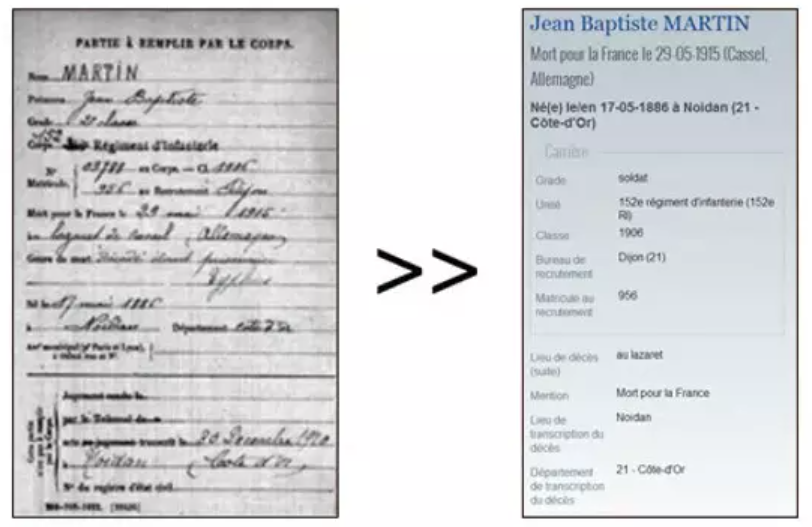 PARTIE À REMPLIR PAR LE CORPS.
Nom MARTIN
Prénoms Jean Baptiste
Grade 2e classe
Corps 152 Régiment d'Infanterie
N° 03788 au Corps. — Cl. 1906
Matricule. 956 au Recrutement Dijon
Mort pour la France le 29 mai 1915
à lazaret de Cassel (Allemagne)
Genre de mort Décédé étant prisonnier
Typhus
Né le 17 mai 1886
à Noidan Département Côte d'Or
Arr' municipal (p' Paris et Lyon),
à défaut rue et N°.
Cette partie
n'est pas à remplir
par le Corps.
Jugement rendu le
par le Tribunal de
acte ou jugement transcrit le 20 Décembre 1920
à Noidan (Côte d'Or)
N° du registre d'état civil
>>
Jean Baptiste MARTIN
Mort pour la France le 29-05-1915 (Cassel,
Allemagne)
Né(e) le/en 17-05-1886 à Noidan (21 -
Côte-d'Or)
Carrière
Grade soldat
Unité 152e régiment d'infanterie (152e
RI)
Classe 1906
Bureau de Dijon (21)
recrutement
Matricule au 956
recrutement
Lieu de décès au lazaret
(suite)
Mention Mort pour la France
Lieu de Noidan
transcription du
décès
Département 21 - Côte-d'Or
de transcription
du décès